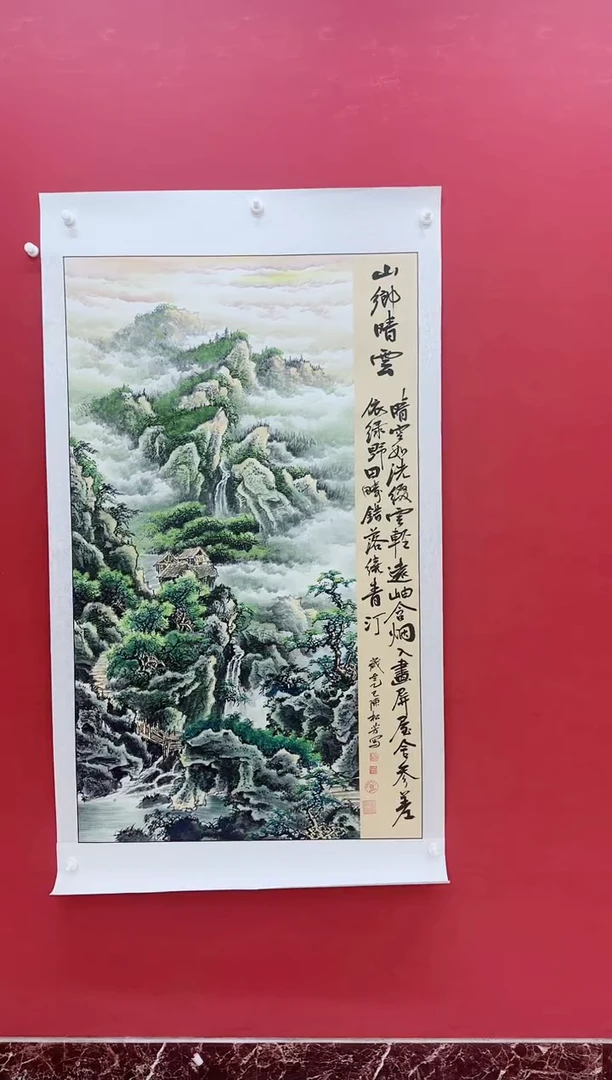 山鄉晴雲
晴空如洗緩雲輕遠岫含烟入畫屏屋舍參差
依綠野田疇錯落繞青汀
歲在乙巳陳松芳寫